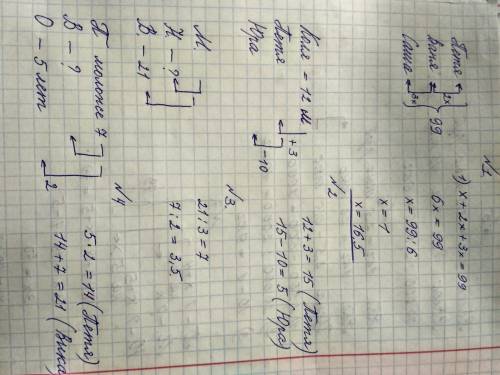 N1
Петя
Ваня 2x
Саша 3x
99
1) x + 2x + 3x = 99
6x = 99
x = 99 : 6
x = 1
x = 16.5
N2
Коля = 12 м.
Петя +3
Юра -10
12 + 3 = 15 (Петя)
15 - 10 = 5 (Юра)
N3.
М.
Н - ?
В. - 21
21 : 3 = 7
7 : 2 = 3,5
N4
П моложе 7
В - ?
О - 5 лет
2
5 · 2 = 14 (Петя)
14 + 7 = 21 (Вика)